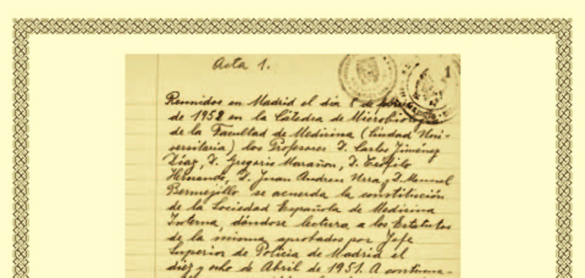 Acta 1.
1
Reunidos en Madrid el día 8 de
de 1952 en la Cátedra de Microbiología
de la Facultad de Medicina (Ciudad Uni-
versitaria) los Profesores D. Carlos Jiménez
Díaz, D. Gregorio Marañon, D. Teófilo
Hernando, D. Juan Andreu Urra y D. Manuel
Bermejillo se acuerda la constitución
de la Sociedad Española de Medicina
Interna, dándose lectura a los Estatutos
de la misma aprobados por Jefe
Superior de Policia de Madrid el
diez y ocho de Abril de 1951. A continua-